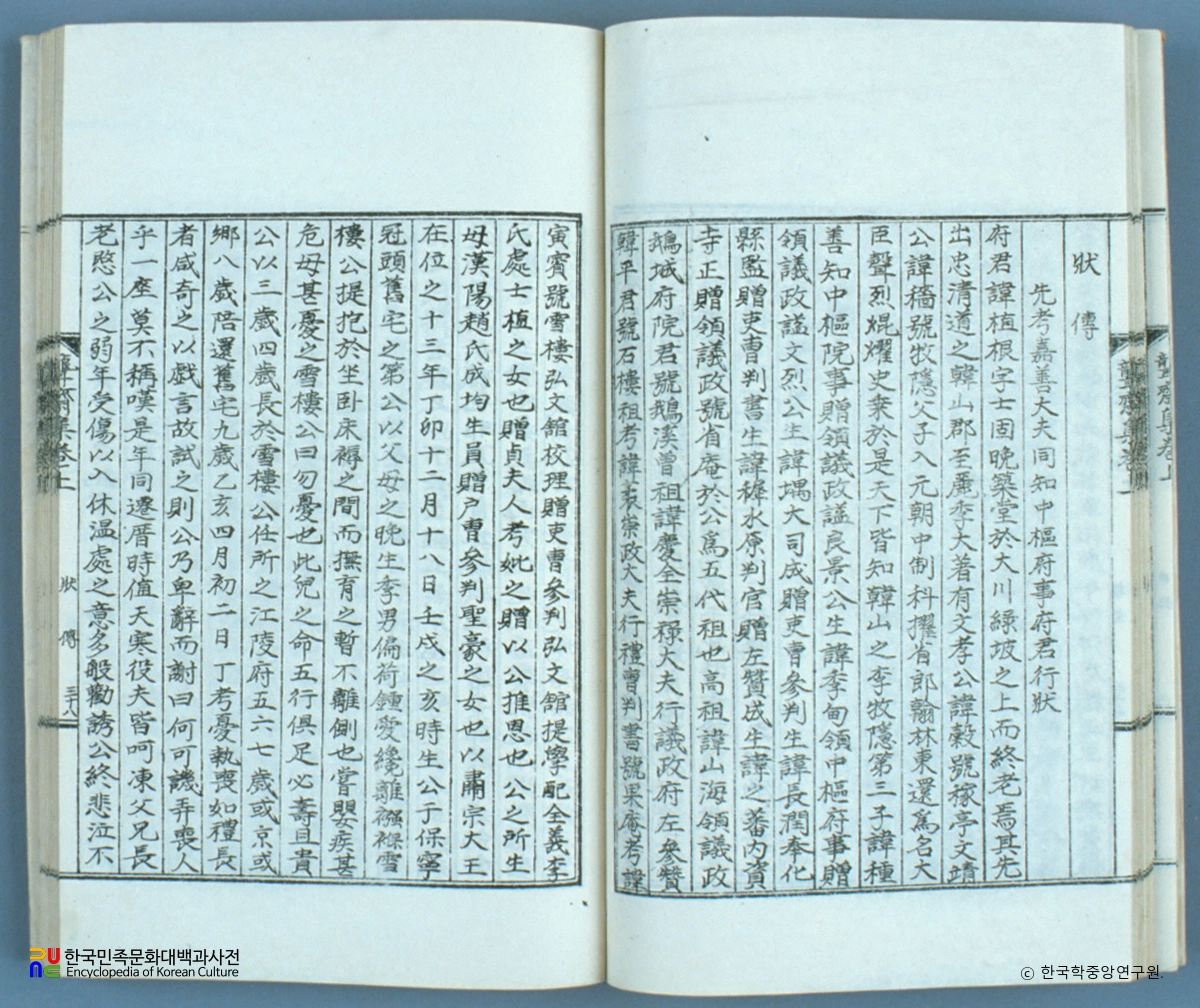 狀 傳
先考嘉善大夫同知中樞府事府君行狀
府君諱植根字士固晩築堂於大川綠坡之上而終老焉其先
出忠清道之韓山郡至麗季大著有文孝公諱穀號稼亭文靖
公諱穡號牧隱父子入元朝中制科擢省郎翰林東還爲名大
臣聲烈焜燿史乘於是天下皆知韓山之李牧隱第三子諱種
善知中樞院事贈領議政謚良景公生諱季甸領中樞府事贈
領議政謚文烈公生諱堣大司成贈吏曹參判生諱長潤奉化
縣監贈吏曹判書生諱穉水原判官贈左贊成生諱之蕃內資
寺正贈領議政號省庵於公爲五代祖也高祖諱山海領議政
鵝城府院君號鵝溪曾祖諱慶全崇祿大夫行議政府左參贊
韓平君號石樓祖考諱袤崇政大夫行禮曹判書號果庵考諱
寅賓號雪樓弘文館校理贈吏曹參判弘文館提學配全義李
氏處士植之女也贈貞夫人考妣之贈以公推恩也公之所生
母漢陽趙氏成均生員贈戶曹參判聖豪之女也以肅宗大王
在位之十三年丁卯十二月十八日壬戌之亥時生公于保寧
冠頭舊宅之第公以父母之晩生季男偏荷鍾愛纔離襁褓雪
樓公提抱於坐卧床褥之間而撫育之暫不離側也嘗嬰疾甚
危母甚憂之雪樓公曰勿憂也此兒之命五行俱足必壽且貴
公以三歲四歲長於雪樓公任所之江陵府五六七歲或京或
鄉八歲陪還舊宅九歲乙亥四月初二日丁考憂執喪如禮長
者咸奇之以戲言故試之則公乃卑辭而謝曰何可譏弄喪人
乎一座莫不稱嘆是年同遷厝時値天寒役夫皆呵凍父兄長
老愍公之弱年受傷以入休溫處之意多般勸誘公終悲泣不
狀 傳 三十八
한국민족문화대백과사전
Encyclopedia of Korean Culture
© 한국학중앙연구원.